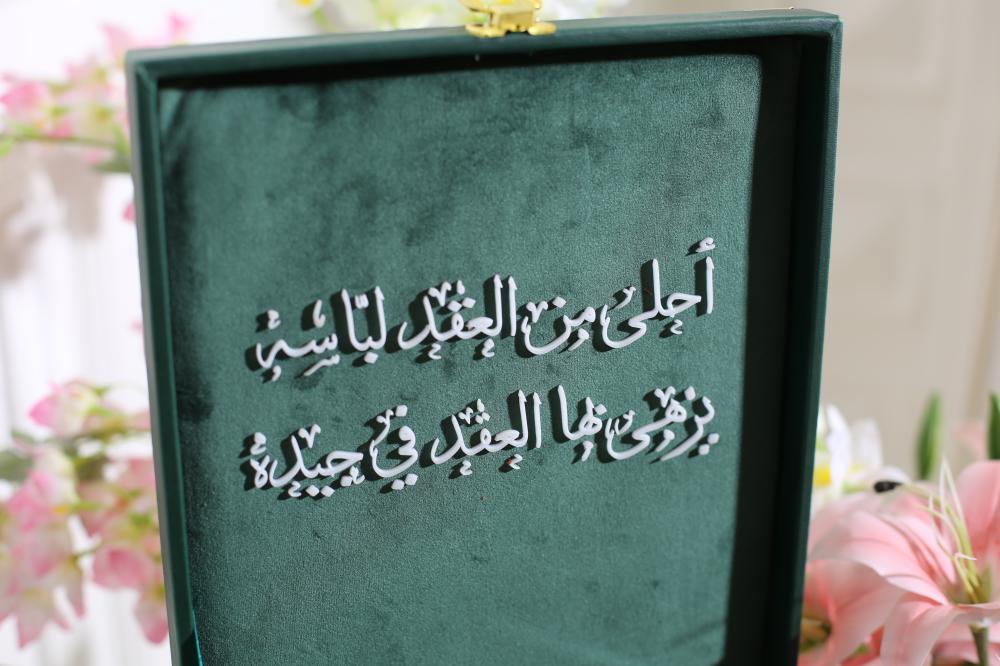 أحلى من العقد لبّاسه
يزهى بها العقد في جيده